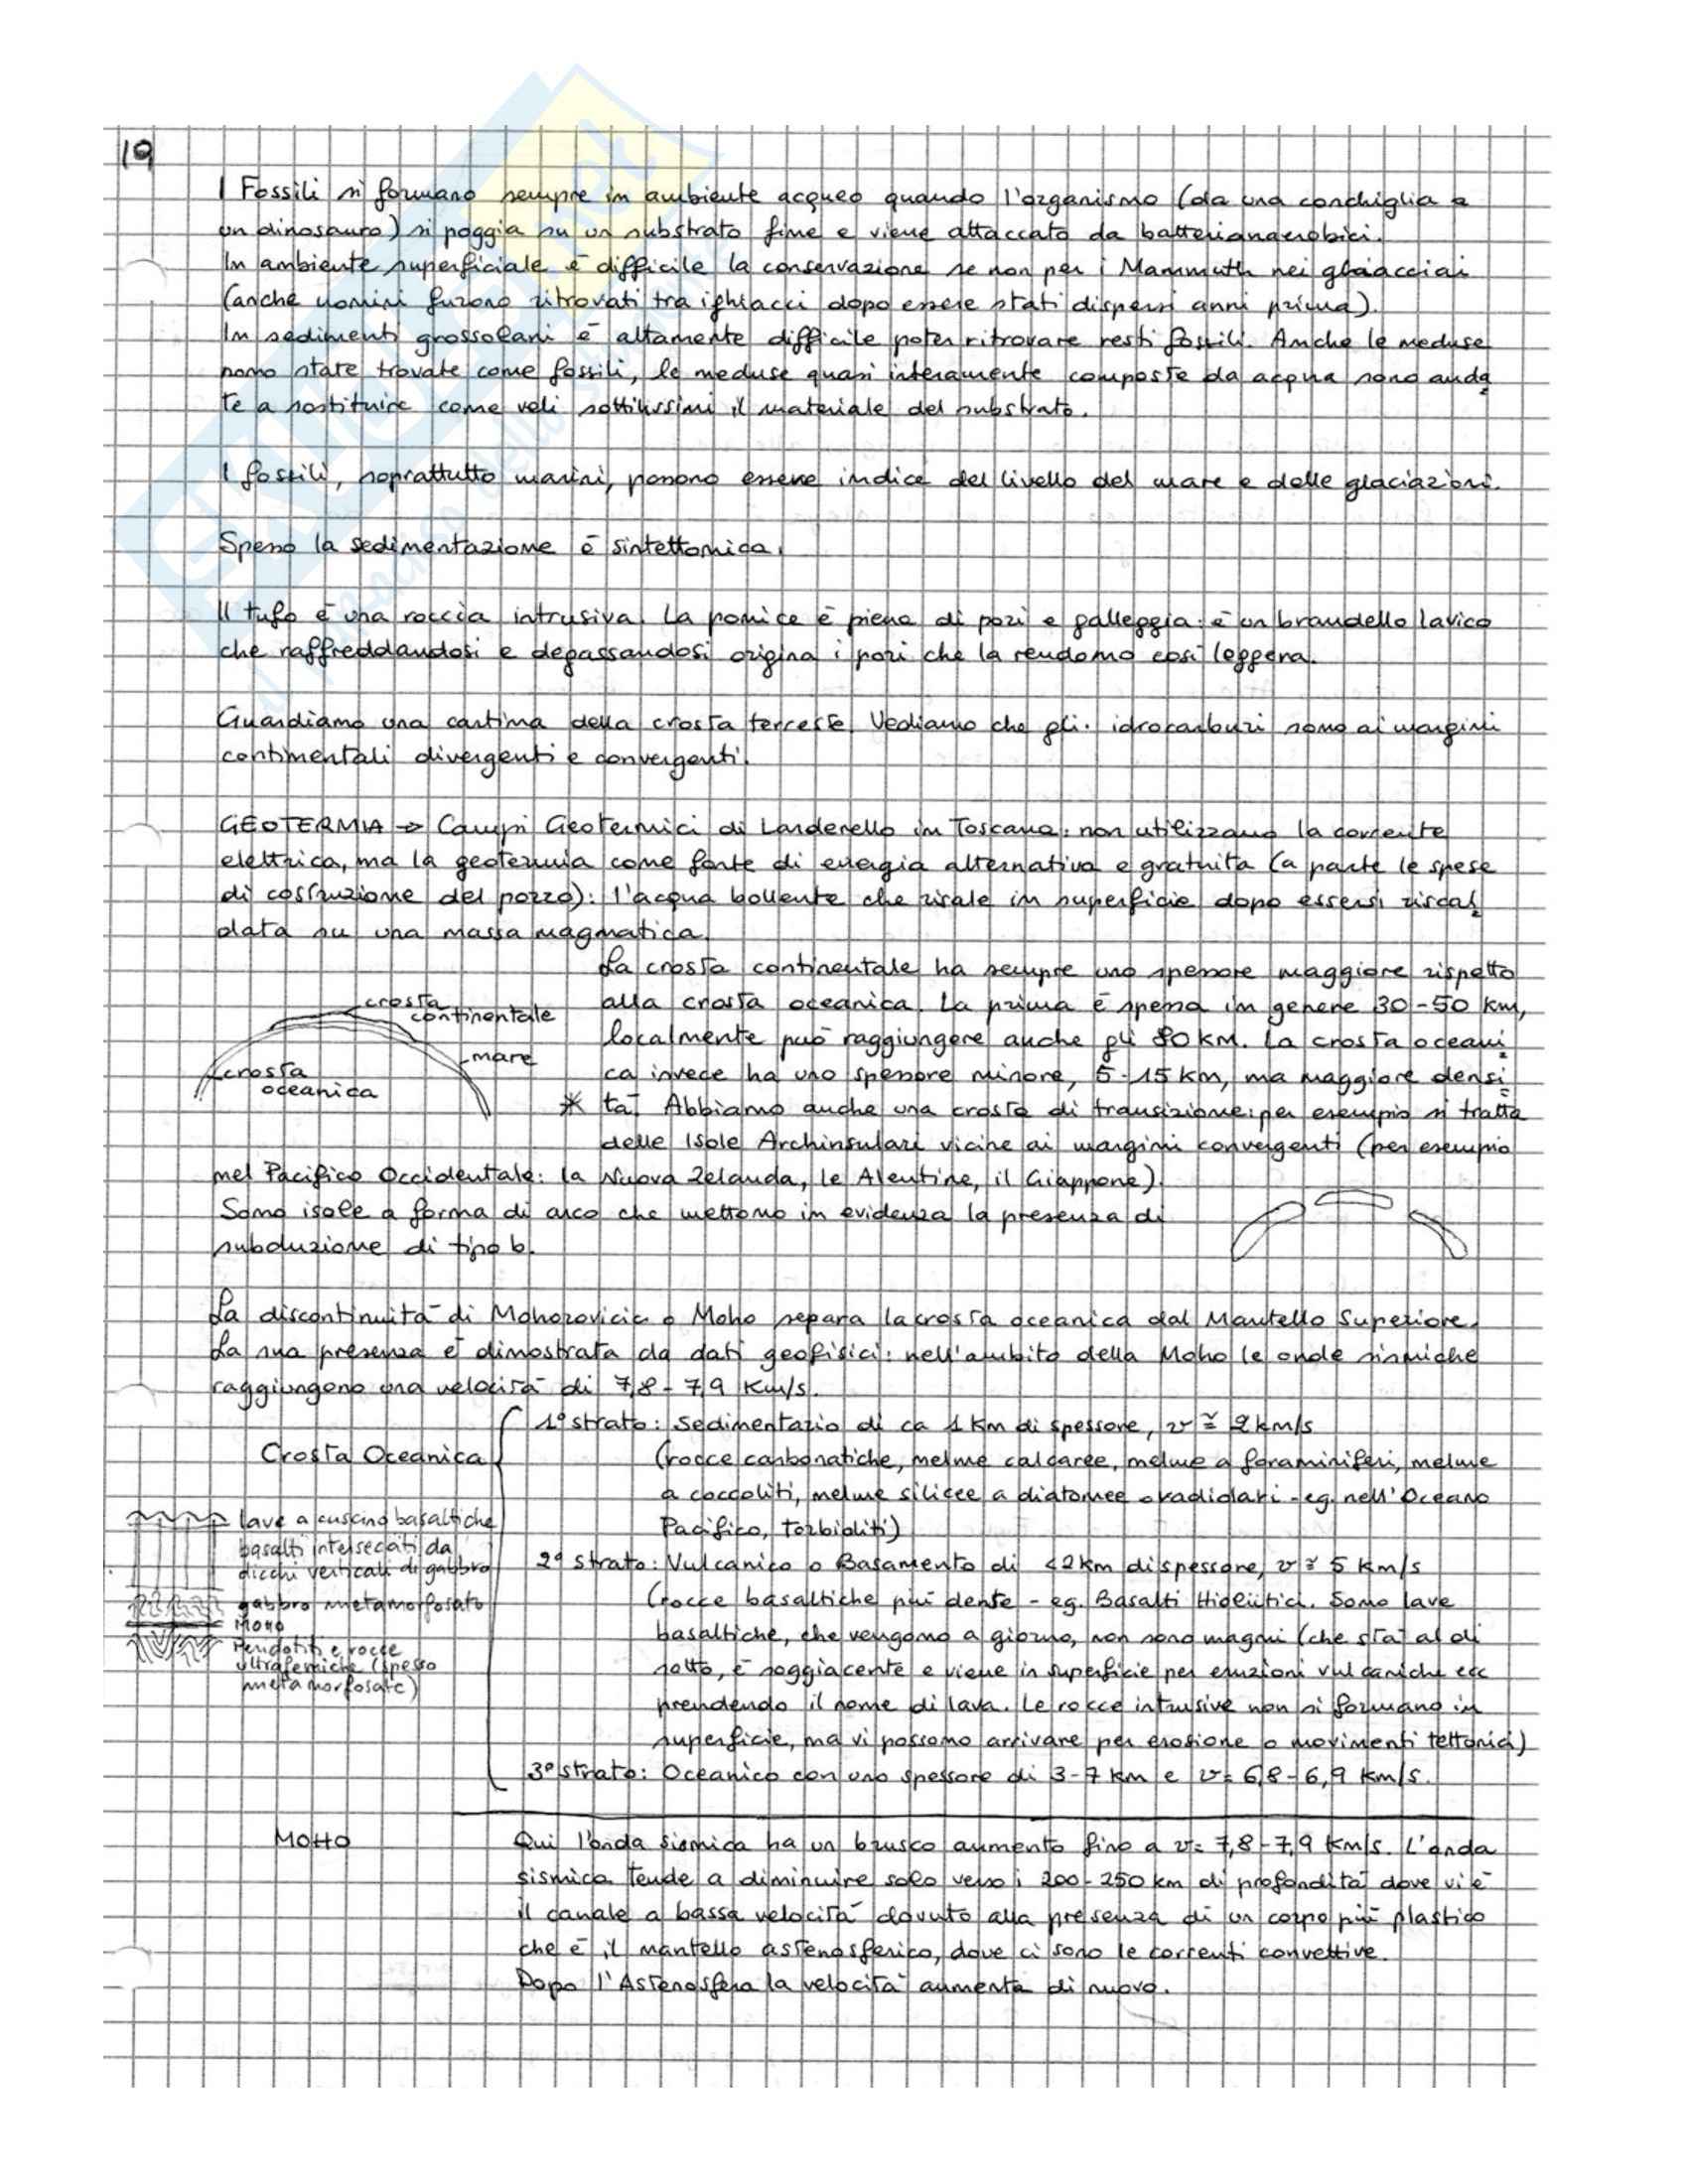 19
I Fossili si formano sempre in ambiente acqueo quando l'organismo (da una conchiglia a
un dinosauro) si poggia su un substrato fine e viene attaccato da batterianaerobici.
In ambiente superficiale è difficile la conservazione se non per i Mammuth nei ghiacciai
(anche uomini furono ritrovati tra i ghiacci dopo essere stati dispersi anni prima).
In sedimenti grossolani è altamente difficile poter ritrovare resti fossili. Anche le meduse
sono state trovate come fossili, le meduse quasi interamente composte da acqua sono anda
te a sostituire come veli sottilissimi il materiale del substrato.
I fossili, soprattutto marini, possono essere indice del livello del mare e delle glaciazioni.
Spesso la sedimentazione è sintettonica.
Il tufo è una roccia intrusiva. La pomice è piena di pori e galleggia: è un brandello lavico
che raffreddandosi e degassandosi origina i pori che la rendono così leggera.
Guardiamo una cartina della crosta terrestre. Vediamo che gli idrocarburi sono ai margini
continentali divergenti e convergenti.
GEOTERMIA → Campi Geotermici di Larderello in Toscana: non utilizzano la corrente
elettrica, ma la geotermia come fonte di energia alternativa e gratuita (a parte le spese
di costruzione del pozzo): l'acqua bollente che risale in superficie dopo essersi riscal
data su una massa magmatica.
La crosta continentale ha sempre uno spessore maggiore rispetto
alla crosta oceanica. La prima è spessa in genere 30-50 km,
localmente può raggiungere anche gli 80 km. La crosta oceani
ca invece ha uno spessore minore, 5-15 km, ma maggiore densi
* tà. Abbiamo anche una crosta di transizione: per esempio si tratta
delle Isole Archinsulari vicine ai margini convergenti (per esempio
nel Pacifico Occidentale: la Nuova Zelanda, le Aleutine, il Giappone).
Sono isole a forma di arco che mettono in evidenza la presenza di
subduzione di tipo b.
crosta
continentale
mare
crosta
oceanica
La discontinuità di Mohorovicic o Moho separa la crosta oceanica dal Mantello Superiore.
La sua presenza è dimostrata da dati geofisici: nell'ambito della Moho le onde sismiche
raggiungono una velocità di 7,8-7,9 Km/s.
Crosta Oceanica
1° strato: Sedimentario di ca 1 Km di spessore, v ≅ 2 km/s
(rocce carbonatiche, melme calcaree, melme a foraminiferi, melme
a coccoliti, melme silicee a diatomee o radiolari - eg. nell'Oceano
Pacifico, Torbiditi)
2° strato: Vulcanico o Basamento di <2km di spessore, v ≅ 5 Km/s
(rocce basaltiche più dense - eg. Basalti. Sono lave
basaltiche, che vengono a giorno, non sono magmi (che sta al di
sotto, è soggiacente e viene in superficie per eruzioni vulcaniche ecc
prendendo il nome di lava. Le rocce intrusive non si formano in
superficie, ma vi possono arrivare per erosione o movimenti tettonici)
3° strato: Oceanico con uno spessore di 3-7 km e v= 6,8-6,9 Km/s.
lave a cuscino basaltiche
basalti intersecati da
dicchi verticali di gabbro
gabbro metamorfosato
Moho
Peridotiti e rocce
ultrafemiche (spesso
metamorfosate)
MOHO
Qui l'onda sismica ha un brusco aumento fino a v= 7,8-7,9 Km/s. L'onda
sismica tende a diminuire solo verso i 200-250 km di profondità dove vi è
il canale a bassa velocità dovuto alla presenza di un corpo più plastico
che è il mantello astenosferico, dove ci sono le correnti convettive.
Dopo l'Astenosfera la velocità aumenta di nuovo.